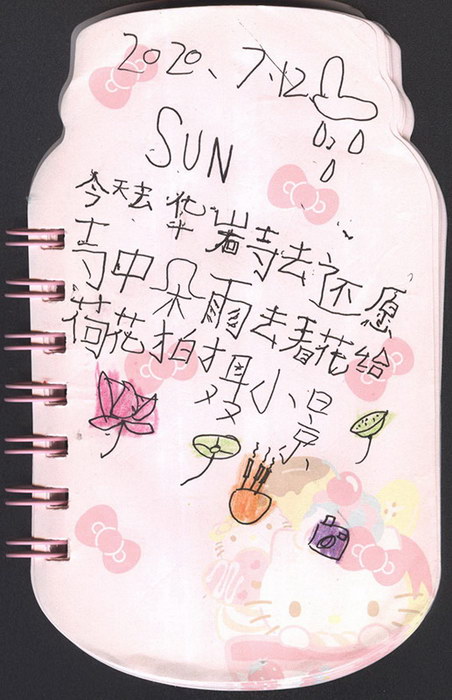 2020、7.12
SUN
今天去华岩寺去还愿
中朵雨去看花给
荷花拍摄小景